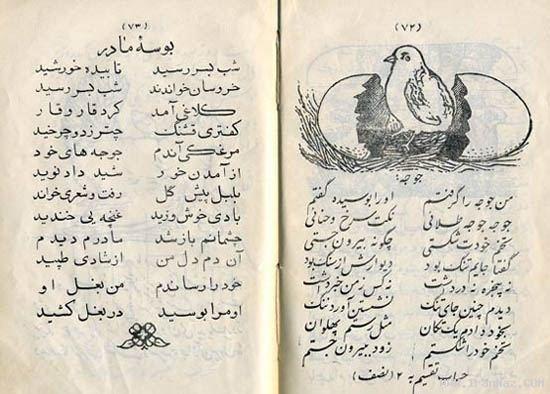 (۷۲)
جوجه:
من جوجه را گرفتم او را بوسیده گفتم
جوجه جوجه طلائی نکت سرخ و حنائی
تخم خودت شکستی چگونه بیرون جستی
گفتا جایم تنگ بود دیوارش از سنگ بود
نه پنجره نه در داشت نه کس ز من خبر داشت
دیدم چنین جای تنگ نشستن آورد ننگ
بخود دادم یک تکان مثل رستم پهلوان
تخم خود را شکستم زود بیرون جستم
حساب تقسیم به ۲ (نصف)
(۷۳)
بوسهٔ مادر
شب بسر رسید تابیده خورشید
خروسان خواندند شب بسر رسید
کلاغی آمد کرد قار و قار
کفتری قشنگ چتر زد و چرخید
مرغکی آندم جوجه های خود
از آمدن خور شید داد نوید
بلبل پیش گل رفت و شعری خواند
بادی خوش وزید غنچه یی خندید
چشمانم باز شد مادرم دیدم
آن دم دل من از شادی طپید
خود را رساندم من بغل او
او مرا بوسید در بغل کشید